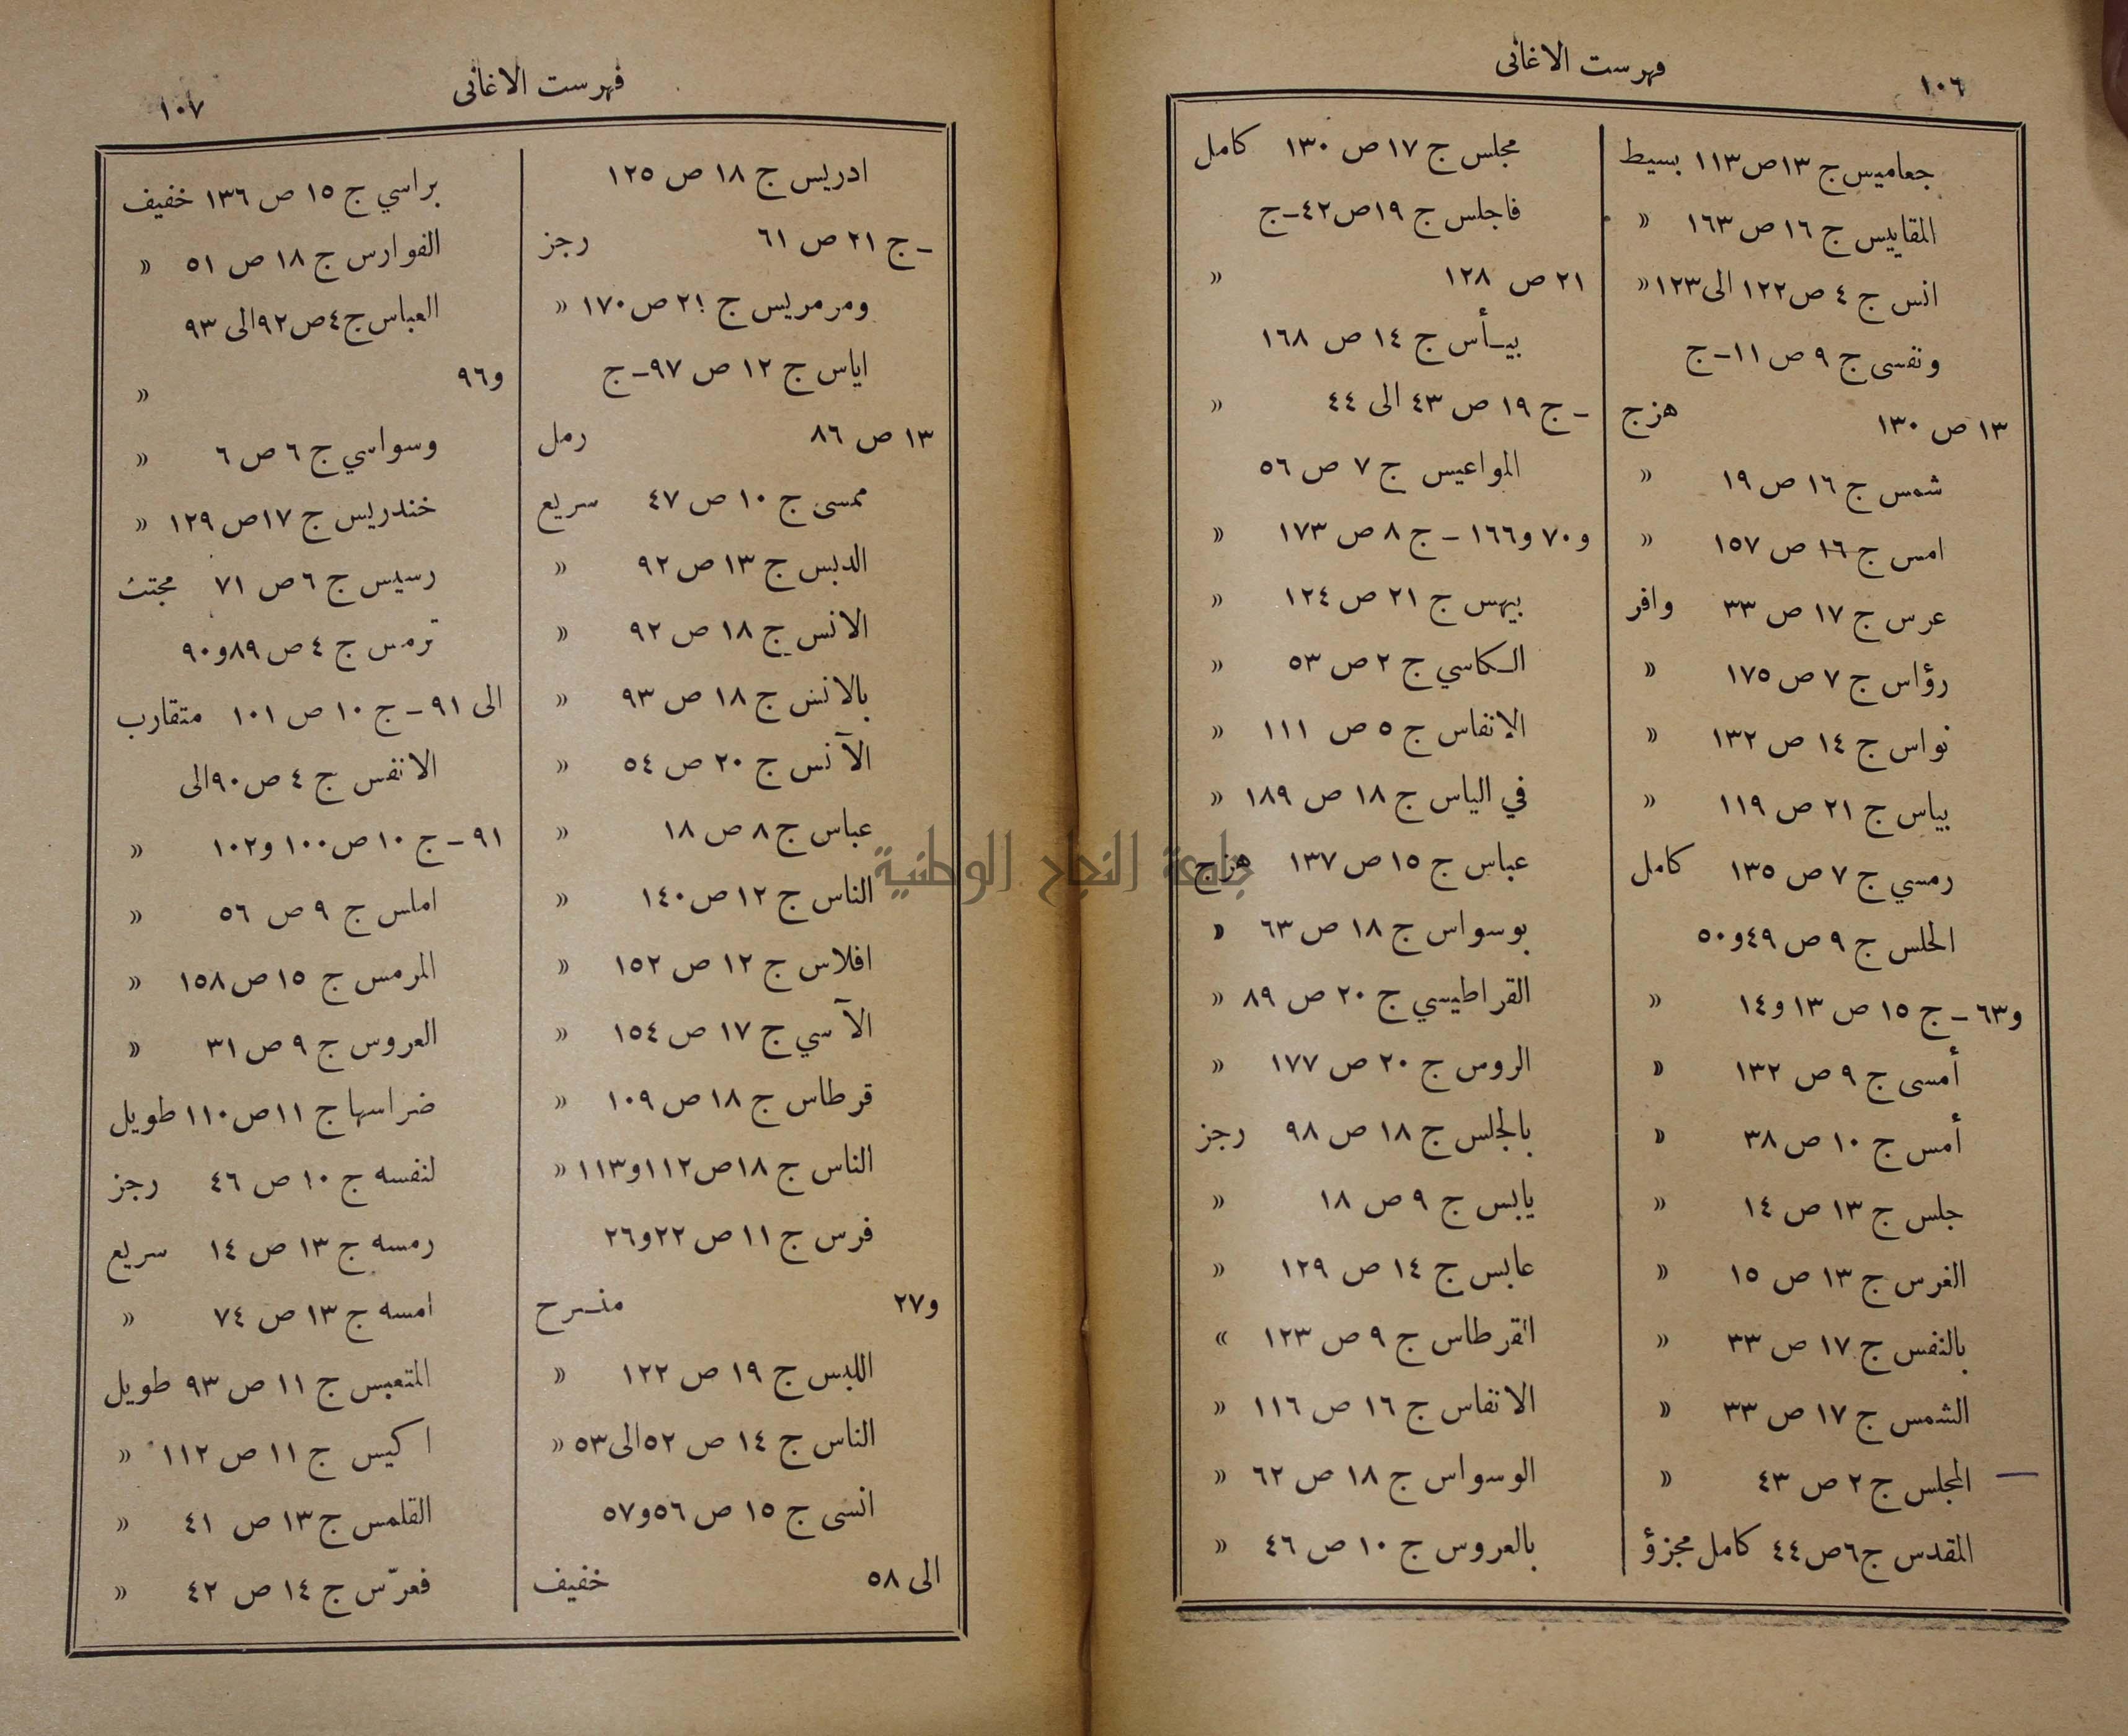 ١٠٦
فهرست الاغانى
جعاميس ج ١٣ ص ١١٣ بسيط
المقاييس ج ١٦ ص ١٦٣ »
انس ج ٤ ص ١٢٢ الى ١٢٣ »
ونفسى ج ٩ ص ١١ - ج
١٣ ص ١٣٠ هزج
شمس ج ١٦ ص ١٩ »
امس ج ١٦ ص ١٥٧ »
عرس ج ١٧ ص ٣٣ وافر
رؤاس ج ٧ ص ١٧٥ »
نواس ج ١٤ ص ١٣٢ »
بياس ج ٢١ ص ١١٩ »
رمسي ج ٧ ص ١٣٥ كامل
الحلس ج ٩ ص ٤٩ و ٥٠
و ٦٣ - ج ١٥ ص ١٣ و ١٤ »
أمسى ج ٩ ص ١٣٢ »
أمس ج ١٠ ص ٣٨ »
جلس ج ١٣ ص ١٤ »
الغرس ج ١٣ ص ١٥ »
بالنفس ج ١٧ ص ٣٣ »
الشمس ج ١٧ ص ٣٣ »
المجلس ج ٢ ص ٤٣ »
المقدس ج ٦ ص ٤٤ كامل مجزؤ
مجلس ج ١٧ ص ١٣٠ كامل
فاجلس ج ١٩ ص ٤٢ - ج
٢١ ص ١٢٨ »
بيـأس ج ١٤ ص ١٦٨
- ج ١٩ ص ٤٣ الى ٤٤ »
المواعيس ج ٧ ص ٥٦
و ٧٠ و ١٦٦ - ج ٨ ص ١٧٣ »
بيهس ج ٢١ ص ١٢٤ »
الـكاسي ج ٢ ص ٥٣ »
الانفاس ج ٥ ص ١١١ »
في الياس ج ١٨ ص ١٨٩ »
عباس ج ١٥ ص ١٣٧ هزج
بوسواس ج ١٨ ص ٦٣ »
القراطيسي ج ٢٠ ص ٨٩ »
الروس ج ٢٠ ص ١٧٧ »
بالجلس ج ١٨ ص ٩٨ رجز
يابس ج ٩ ص ١٨ »
عابس ج ١٤ ص ١٢٩ »
القرطاس ج ٩ ص ١٢٣ «
الانفاس ج ١٦ ص ١١٦ »
الوسواس ج ١٨ ص ٦٢ »
بالعروس ج ١٠ ص ٤٦ »
جامعة النجاح الوطنية
فهرست الاغانى
١٠٧
ادريس ج ١٨ ص ١٢٥
- ج ٢١ ص ٦١ رجز
ومرمريس ج ٢١ ص ١٧٠ »
اياس ج ١٢ ص ٩٧ - ج
١٣ ص ٨٦ رمل
ممسى ج ١٠ ص ٤٧ سريع
الدبس ج ١٣ ص ٩٢ »
الانس ج ١٨ ص ٩٢ »
بالانس ج ١٨ ص ٩٣ »
الآنس ج ٢٠ ص ٥٤ »
عباس ج ٨ ص ١٨ »
الناس ج ١٢ ص ١٤٠ »
افلاس ج ١٢ ص ١٥٢ »
الآسي ج ١٧ ص ١٥٤ »
قرطاس ج ١٨ ص ١٠٩ »
الناس ج ١٨ ص ١١٢ و ١١٣ »
فرس ج ١١ ص ٢٢ و ٢٦
و ٢٧ منـرح
اللبس ج ١٩ ص ١٢٢ »
الناس ج ١٤ ص ٥٢ الى ٥٣ »
انسى ج ١٥ ص ٥٦ و ٥٧
الى ٥٨ خفيف
براسي ج ١٥ ص ١٣٦ خفيف
الفوارس ج ١٨ ص ٥١ »
العباس ج ٤ ص ٩٢ الى ٩٣
و ٩٦ »
وسواسي ج ٦ ص ٦ »
خندريس ج ١٧ ص ١٢٩ »
رسيس ج ٦ ص ٧١ مجتث
ترمس ج ٤ ص ٨٩ و ٩٠
الى ٩١ - ج ١٠ ص ١٠١ متقارب
الانفس ج ٤ ص ٩٠ الى
٩١ - ج ١٠ ص ١٠٠ و ١٠٢ »
املس ج ٩ ص ٥٦ »
المرمس ج ١٥ ص ١٥٨ »
العروس ج ٩ ص ٣١ »
ضراسها ج ١١ ص ١١٠ طويل
لنفسه ج ١٠ ص ٤٦ رجز
رمسه ج ١٣ ص ١٤ سريع
امسه ج ١٣ ص ٧٤ »
المتعبس ج ١١ ص ٩٣ طويل
اكيس ج ١١ ص ١١٢ »
القلمس ج ١٣ ص ٤١ »
فعرّس ج ١٤ ص ٤٢ »